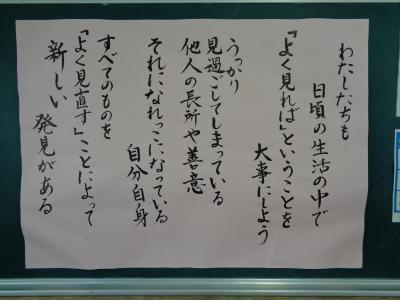 わたしたちも
日頃の生活の中で
「よく見れば」ということを
大事にしよう
うっかり
見過ごしてしまっている
他人の長所や善意
それになれっこになっている
自分自身
すべてのものを
「よく見直す」ことによって
新しい発見がある